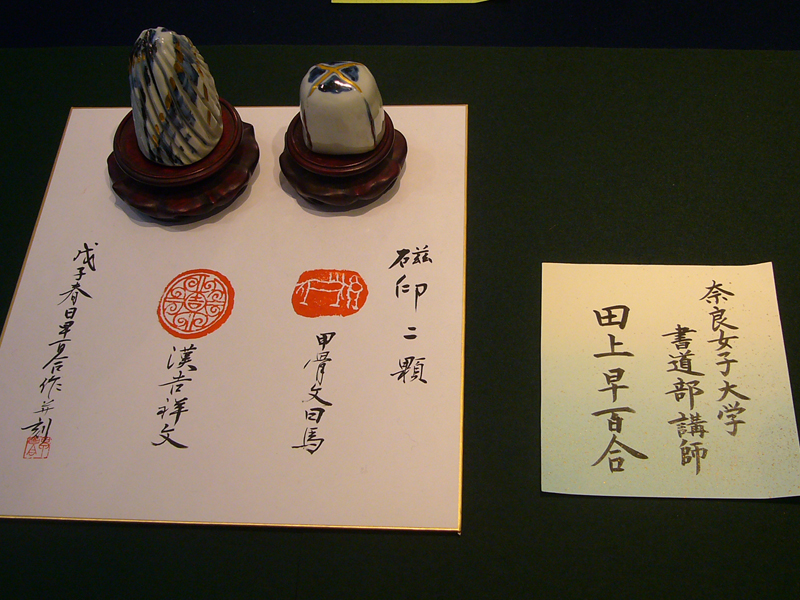 磁印二顆
甲骨文曰馬
漢吉祥文
戊子春日早百合作并刻
奈良女子大学
書道部講師
田上早百合